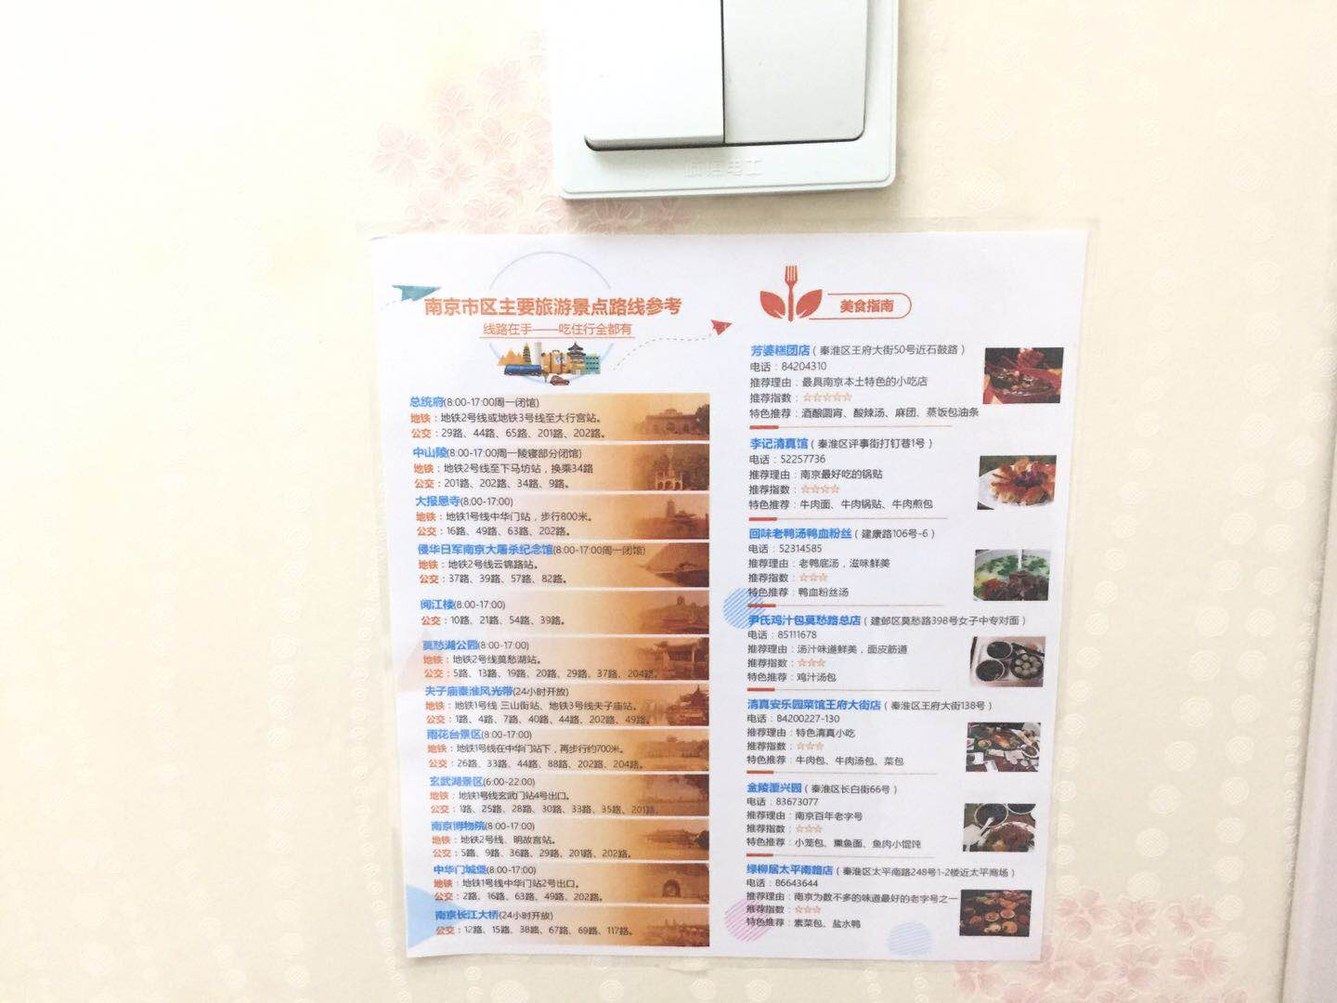 南京市区主要旅游景点路线参考
线路在手——吃住行全都有
总统府(8:00-17:00周一闭馆)
地铁：地铁2号线或地铁3号线至大行宫站。
公交：29路、44路、65路、201路、202路。
中山陵(8:00-17:00周一陵寝部分闭馆)
地铁：地铁2号线至下马坊站，换乘34路
公交：201路、202路、34路、9路。
大报恩寺(8:00-17:00)
地铁：地铁1号线中华门站，步行800米。
公交：16路、49路、63路、202路。
侵华日军南京大屠杀纪念馆(8:00-17:00周一闭馆)
地铁：地铁2号线云锦路站。
公交：37路、39路、57路、82路。
阅江楼(8:00-17:00)
公交：10路、21路、54路、39路。
莫愁湖公园(8:00-17:00)
地铁：地铁2号线莫愁湖站。
公交：5路、13路、19路、20路、29路、37路、204路。
夫子庙秦淮风光带(24小时开放)
地铁：地铁1号线 三山街站、地铁3号线夫子庙站。
公交：1路、4路、7路、40路、44路、202路、49路。
雨花台景区(8:00-17:00)
地铁：地铁1号线在中华门站下，再步行约700米。
公交：26路、33路、44路、88路、202路、204路。
玄武湖景区(6:00-22:00)
地铁：地铁1号线玄武门站4号出口。
公交：1路、25路、28路、30路、33路、35路、201路
南京博物院(8:00-17:00)
地铁：地铁2号线、明故宫站。
公交：5路、9路、36路、29路、201路、202路。
中华门城堡(8:00-17:00)
地铁：地铁1号线中华门站2号出口。
公交：2路、16路、63路、49路、202路。
南京长江大桥(24小时开放)
公交：12路、15路、38路、67路、69路、117路。
美食指南
芳婆糕团店（秦淮区王府大街50号近石鼓路）
电话：84204310
推荐理由：最具南京本土特色的小吃店
推荐指数：☆☆☆☆☆
特色推荐：酒酿圆宵、酸辣汤、麻团、蒸饭包油条
李记清真馆（秦淮区评事街打钉巷1号）
电话：52257736
推荐理由：南京最好吃的锅贴
推荐指数：☆☆☆☆
特色推荐：牛肉面、牛肉锅贴、牛肉煎包
回味老鸭汤鸭血粉丝（建康路106号-6）
电话：52314585
推荐理由：老鸭底汤，滋味鲜美
推荐指数：☆☆☆
特色推荐：鸭血粉丝汤
尹氏鸡汁包莫愁路总店（建邺区莫愁路398号女子中专对面）
电话：85111678
推荐理由：汤汁味道鲜美，面皮筋道
推荐指数：☆☆☆
特色推荐：鸡汁汤包
清真安乐园菜馆王府大街店（秦淮区王府大街138号）
电话：84200227-130
推荐理由：特色清真小吃
推荐指数：☆☆☆
特色推荐：牛肉包、牛肉汤包、菜包
金陵重兴园（秦淮区长白街66号）
电话：83673077
推荐理由：南京百年老字号
推荐指数：☆☆☆
特色推荐：小笼包、熏鱼面、鱼肉小馄饨
绿柳居太平南路店（秦淮区太平南路248号1-2楼近太平商场）
电话：86643644
推荐理由：南京为数不多的味道最好的老字号之一
推荐指数：☆☆☆
特色推荐：素菜包、盐水鸭